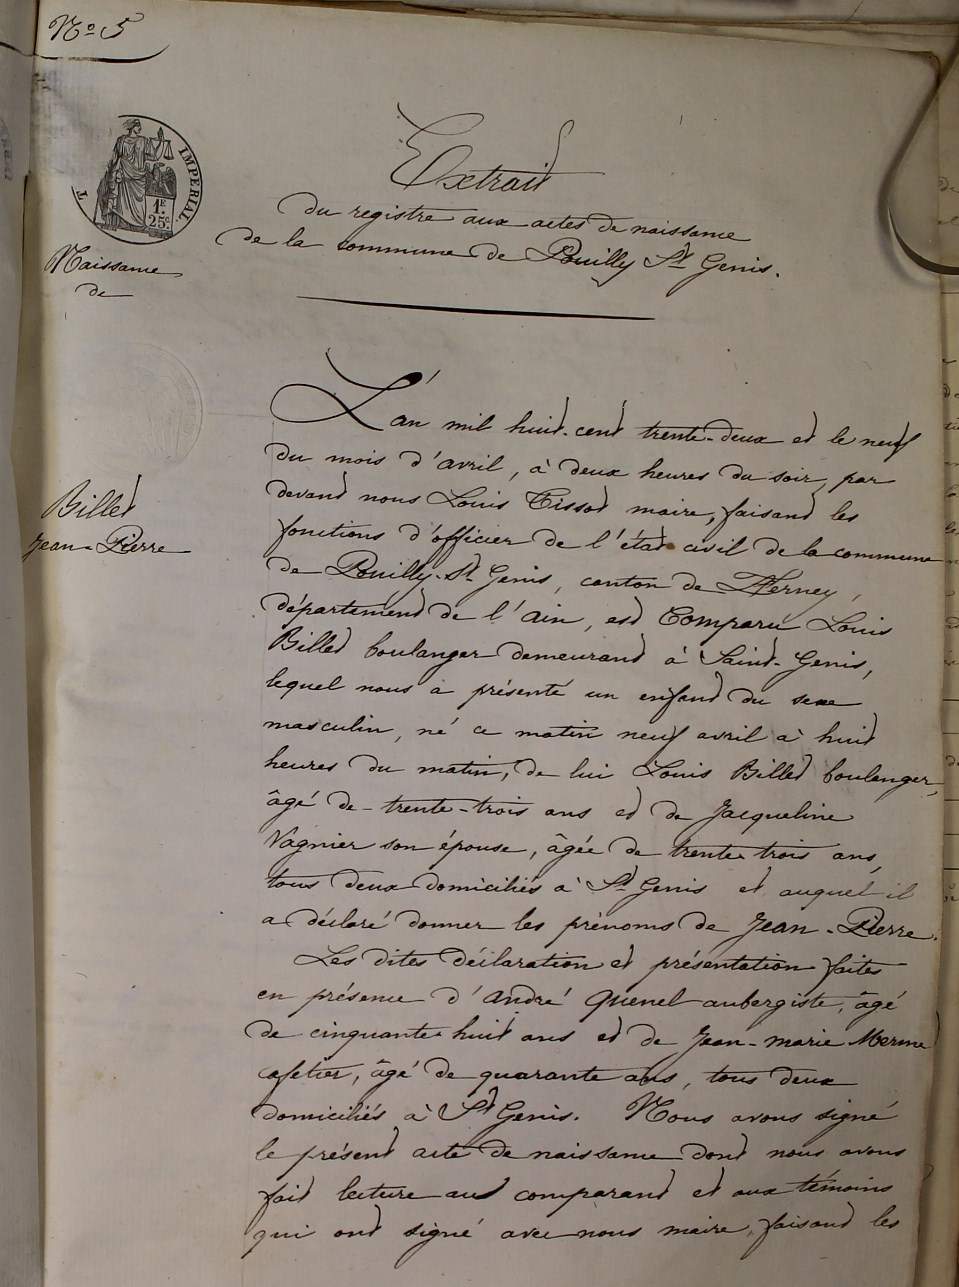 No 5
T
IMPERIAL.
1F
25c.
Extrait
du registre aux actes de naissance
de la commune de Pouilly St Genis.
Naissance
de
Billet
Jean-Pierre
L'an mil huit-cent trente-deux et le neuf
du mois d'avril, à deux heures du soir, par
devant nous Louis Tissot maire, faisant les
fonctions d'officier de l'état civil de la commune
de Pouilly-St Genis, canton de Ferney,
département de l'Ain, est Comparu Louis
Billet boulanger demeurant à Saint-Genis,
lequel nous a présenté un enfant du sexe
masculin, né ce matin neuf avril à huit
heures du matin, de lui Louis Billet boulanger,
âgé de-trente-trois ans et de Jacqueline
Vagnier son épouse, âgée de trente trois ans,
tous deux domiciliés à St Genis et auquel il
a déclaré donner les prénoms de Jean-Pierre.
Les dites déclaration et présentation faites
en présence d'André Quenel aubergiste, âgé
de cinquante huit ans et de Jean-marie Mermet
cafetier, âgé de quarante ans, tous deux
domiciliés à St Genis. Nous avons signé
le présent acte de naissance dont nous avons
fait lecture au comparant et aux témoins
qui ont signé avec nous maire, faisant les